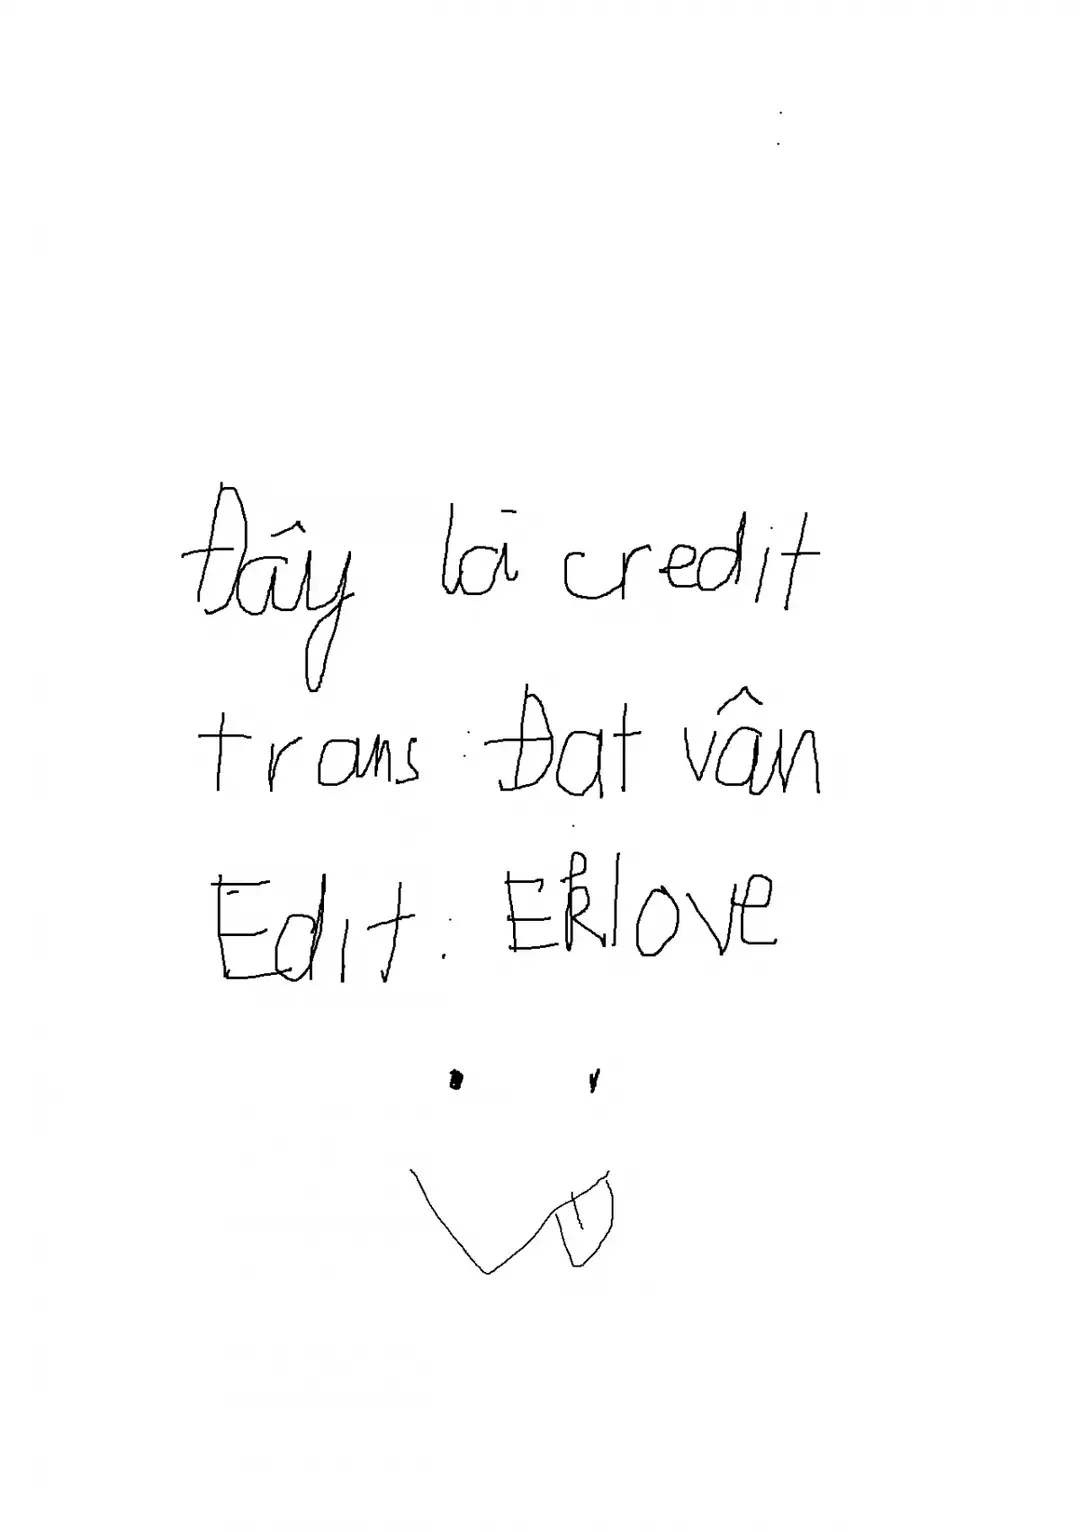 Đây là credit
trans : Đạt vân
Edit : Eklove